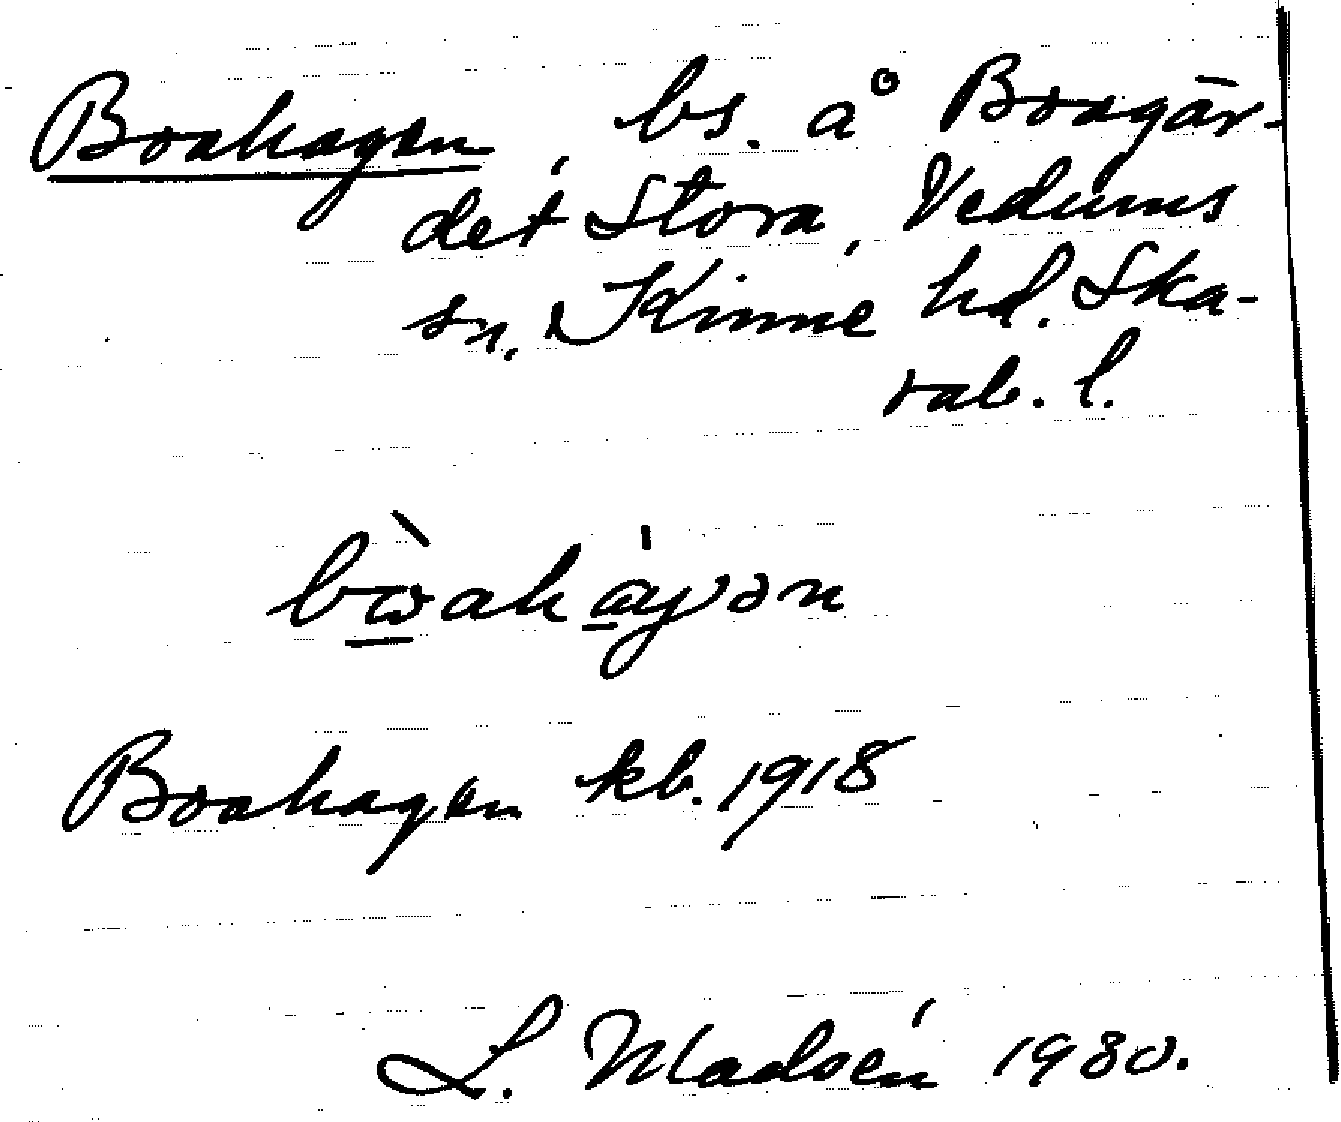 Boahagen, bs. å Boagär-
det Stora, Vedums
sn, Kinne hd. Ska-
rab. l.
Boahagen kb. 1918
L. Madsén 1930.